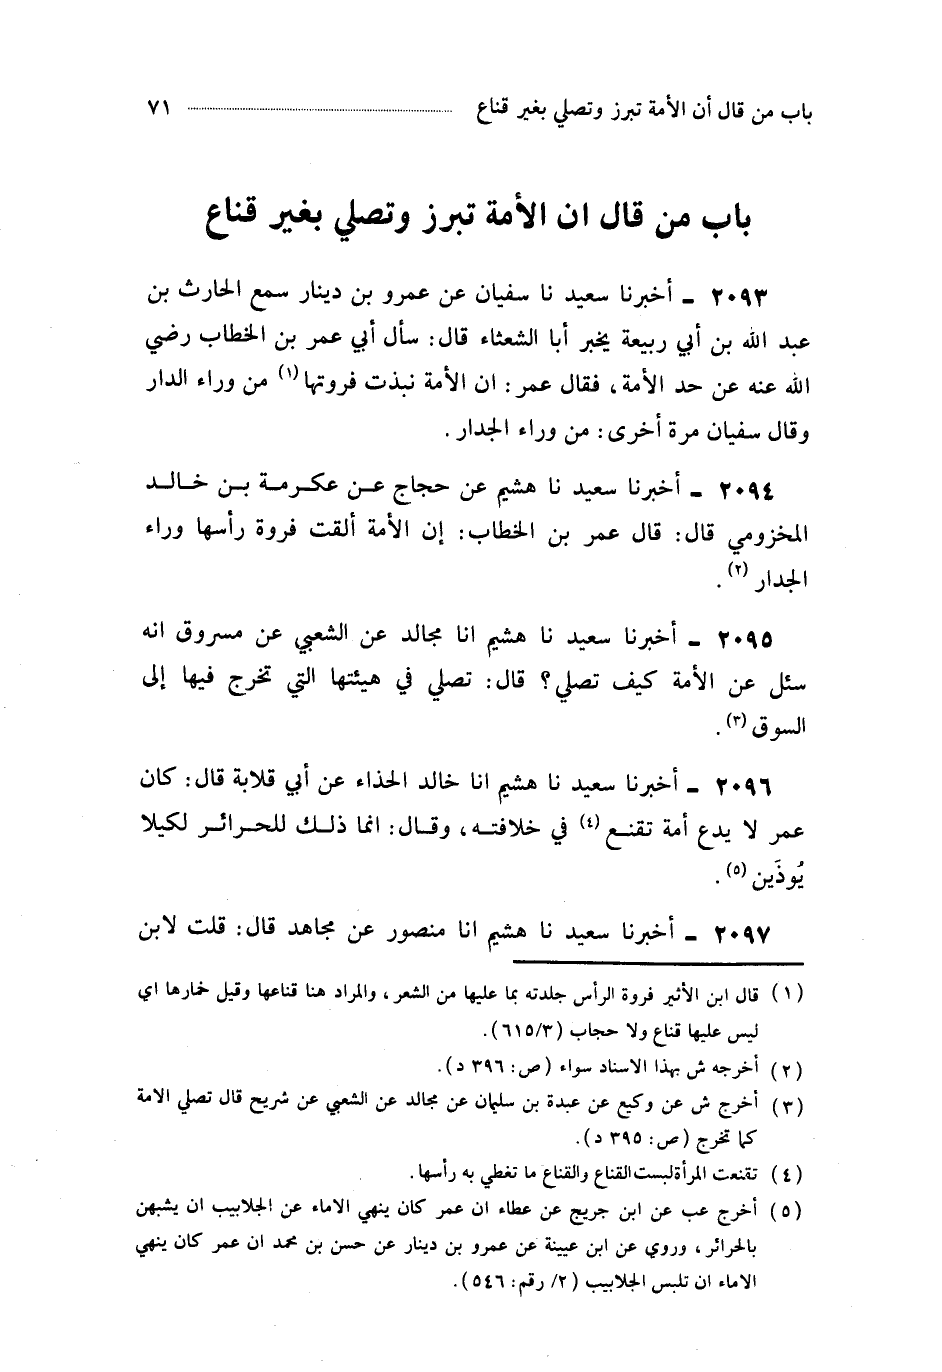 باب من قال أن الأمة تبرز وتصلي بغير قناع ٧١
باب من قال ان الأمة تبرز وتصلي بغير قناع
٢٠٩٣ ـ أخبرنا سعيد نا سفيان عن عمرو بن دينار سمع الحارث بن
عبد الله بن أبي ربيعة يخبر أبا الشعثاء قال: سأل أبي عمر بن الخطاب رضي
الله عنه عن حد الأمة، فقال عمر: ان الأمة نبذت فروتها(١) من وراء الدار
وقال سفيان مرة أخرى: من وراء الجدار.
٢٠٩٤ ـ أخبرنا سعيد نا هشيم عن حجاج عن عكرمة بن خالد
المخزومي قال: قال عمر بن الخطاب: إن الأمة ألقت فروة رأسها وراء
الجدار(٢).
٢٠٩٥ ـ أخبرنا سعيد نا هشيم انا مجالد عن الشعبي عن مسروق انه
سئل عن الأمة كيف تصلي؟ قال: تصلي في هيئتها التي تخرج فيها إلى
السوق(٣).
٢٠٩٦ ـ أخبرنا سعيد نا هشيم انا خالد الحذاء عن أبي قلابة قال: كان
عمر لا يدع أمة تقنع(٤) في خلافته، وقال: انما ذلك للحرائر لكيلا
يُوذَين(٥).
٢٠٩٧ ـ أخبرنا سعيد نا هشيم انا منصور عن مجاهد قال: قلت لابن
(١) قال ابن الأثير فروة الرأس جلدته بما عليها من الشعر، والمراد هنا قناعها وقيل خمارها اي
ليس عليها قناع ولا حجاب (٦١٥/٣).
(٢) أخرجه ش بهذا الاسناد سواء (ص: ٣٩٦ د).
(٣) أخرج ش عن وكيع عن عبدة بن سليمان عن مجالد عن الشعبي عن شريح قال تصلي الامة
كما تخرج (ص: ٣٩٥ د).
(٤) تقنعت المرأة لبست القناع والقناع ما تغطي به رأسها.
(٥) أخرج عب عن ابن جريج عن عطاء ان عمر كان ينهي الاماء عن الجلابيب ان يشبهن
بالحرائر، وروي عن ابن عيينة عن عمرو بن دينار عن حسن بن محمد ان عمر كان ينهي
الاماء ان تلبس الجلابيب (٢/ رقم: ٥٤٦).